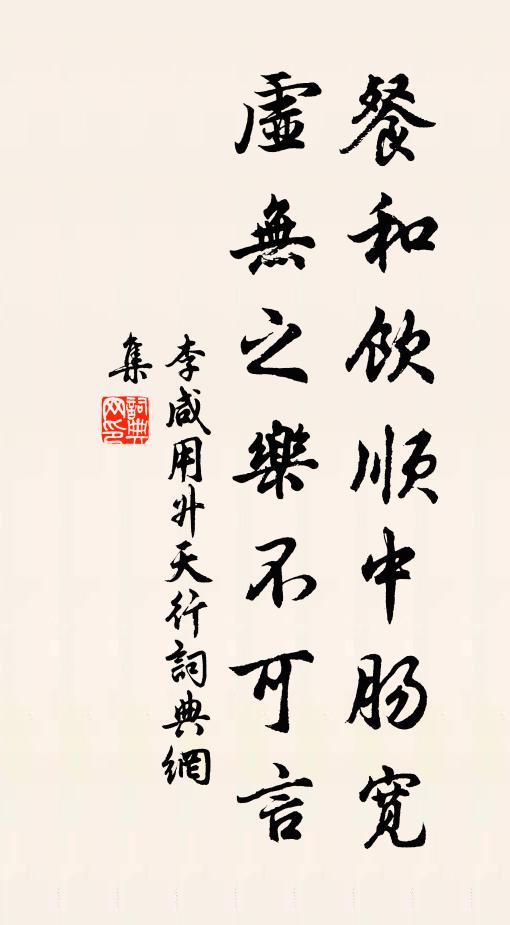 餐和飲順中肠寬
虛無之樂不可言
李咸用升天行詞典網
集
詞典网印